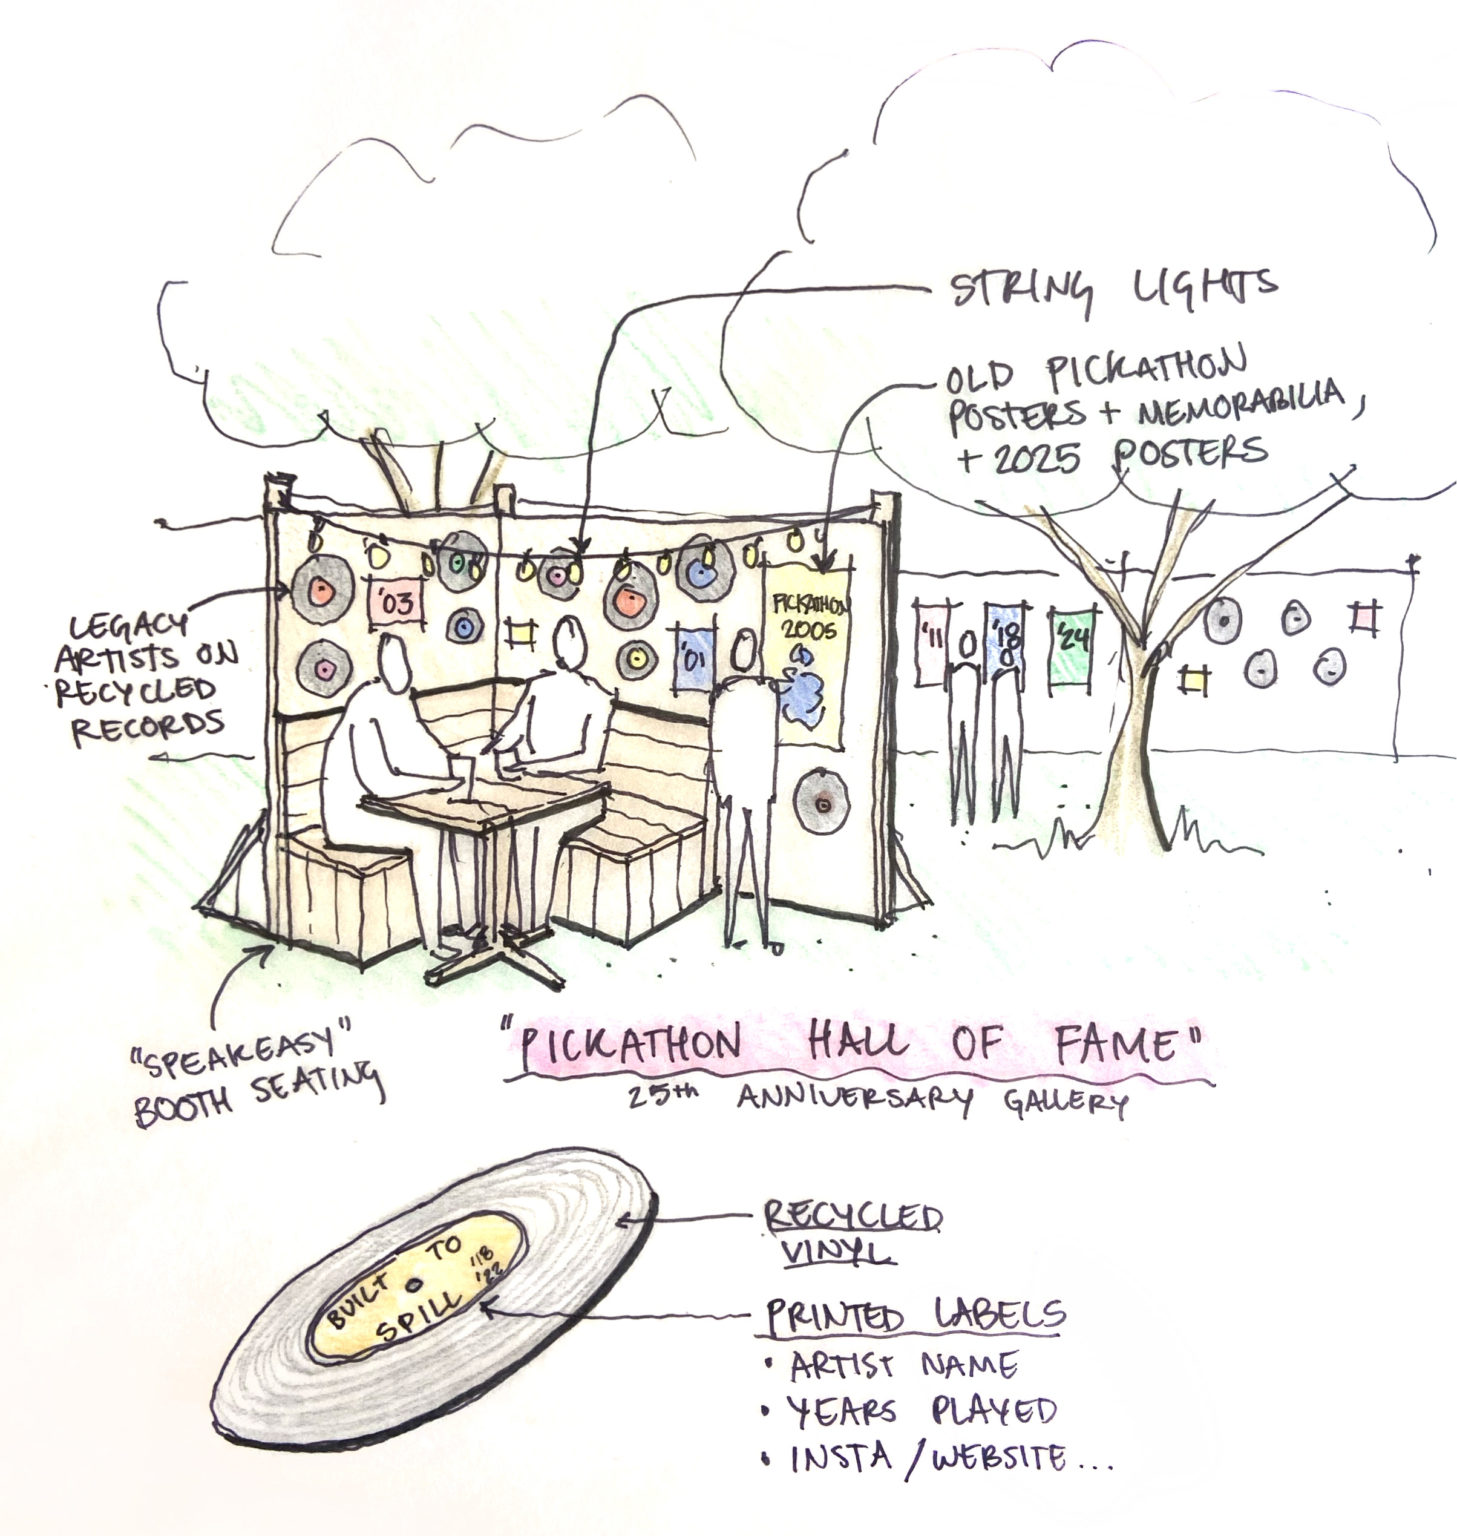 STRING LIGHTS
OLD PICKATHON
POSTERS + MEMORABILIA,
+ 2025 POSTERS
LEGACY
ARTISTS ON
RECYCLED
RECORDS
'03
'01
PICKATHON
2005
'11
'18
'24
"SPEAKEASY"
BOOTH SEATING
"PICKATHON HALL OF FAME"
25th ANNIVERSARY GALLERY
BUILT TO
SPILL
'18
'22
RECYCLED
VINYL
PRINTED LABELS
• ARTIST NAME
• YEARS PLAYED
• INSTA / WEBSITE...